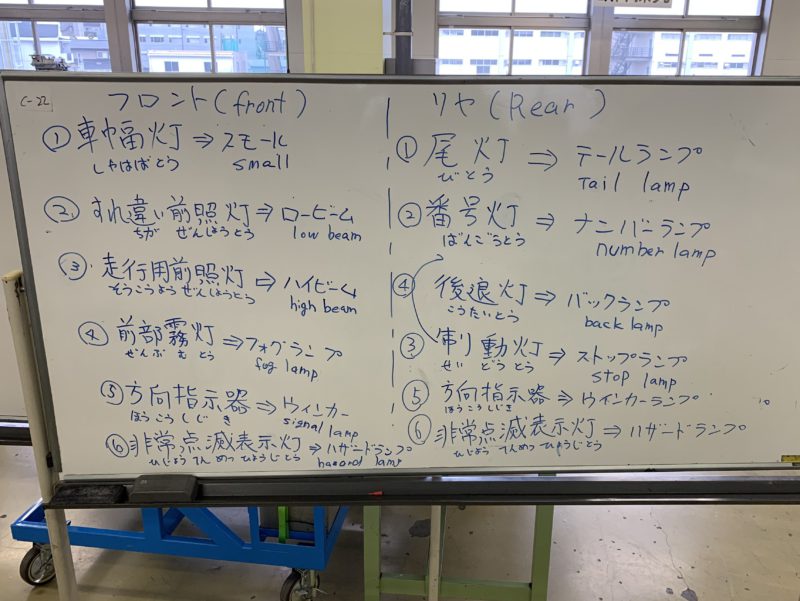 C-22
フロント(front)
① 車幅灯 ⇒ スモール
しゃはばとう small
② すれ違い前照灯 ⇒ ロービーム
ちが ぜんしょうとう low beam
③ 走行用前照灯 ⇒ ハイビーム
そうこうよう ぜんしょうとう high beam
④ 前部霧灯 ⇒ フォグランプ
ぜんぶ む とう fog lamp
⑤ 方向指示器 ⇒ ウィンカー
ほうこうしじき signal lamp
⑥ 非常点滅表示灯 ⇒ ハザードランプ
ひじょう てんめつ ひょうじとう hazard lamp
リヤ(Rear)
① 尾灯 ⇒ テールランプ
びとう Tail lamp
② 番号灯 ⇒ ナンバーランプ
ばんごうとう number lamp
④ 後退灯 ⇒ バックランプ
こうたいとう back lamp
③ 制動灯 ⇒ ストップランプ
せい どう とう stop lamp
⑤ 方向指示器 ⇒ ウインカーランプ
ほうこうしじき
⑥ 非常点滅表示灯 ⇒ ハザードランプ
ひじょう てんめつ ひょうじとう